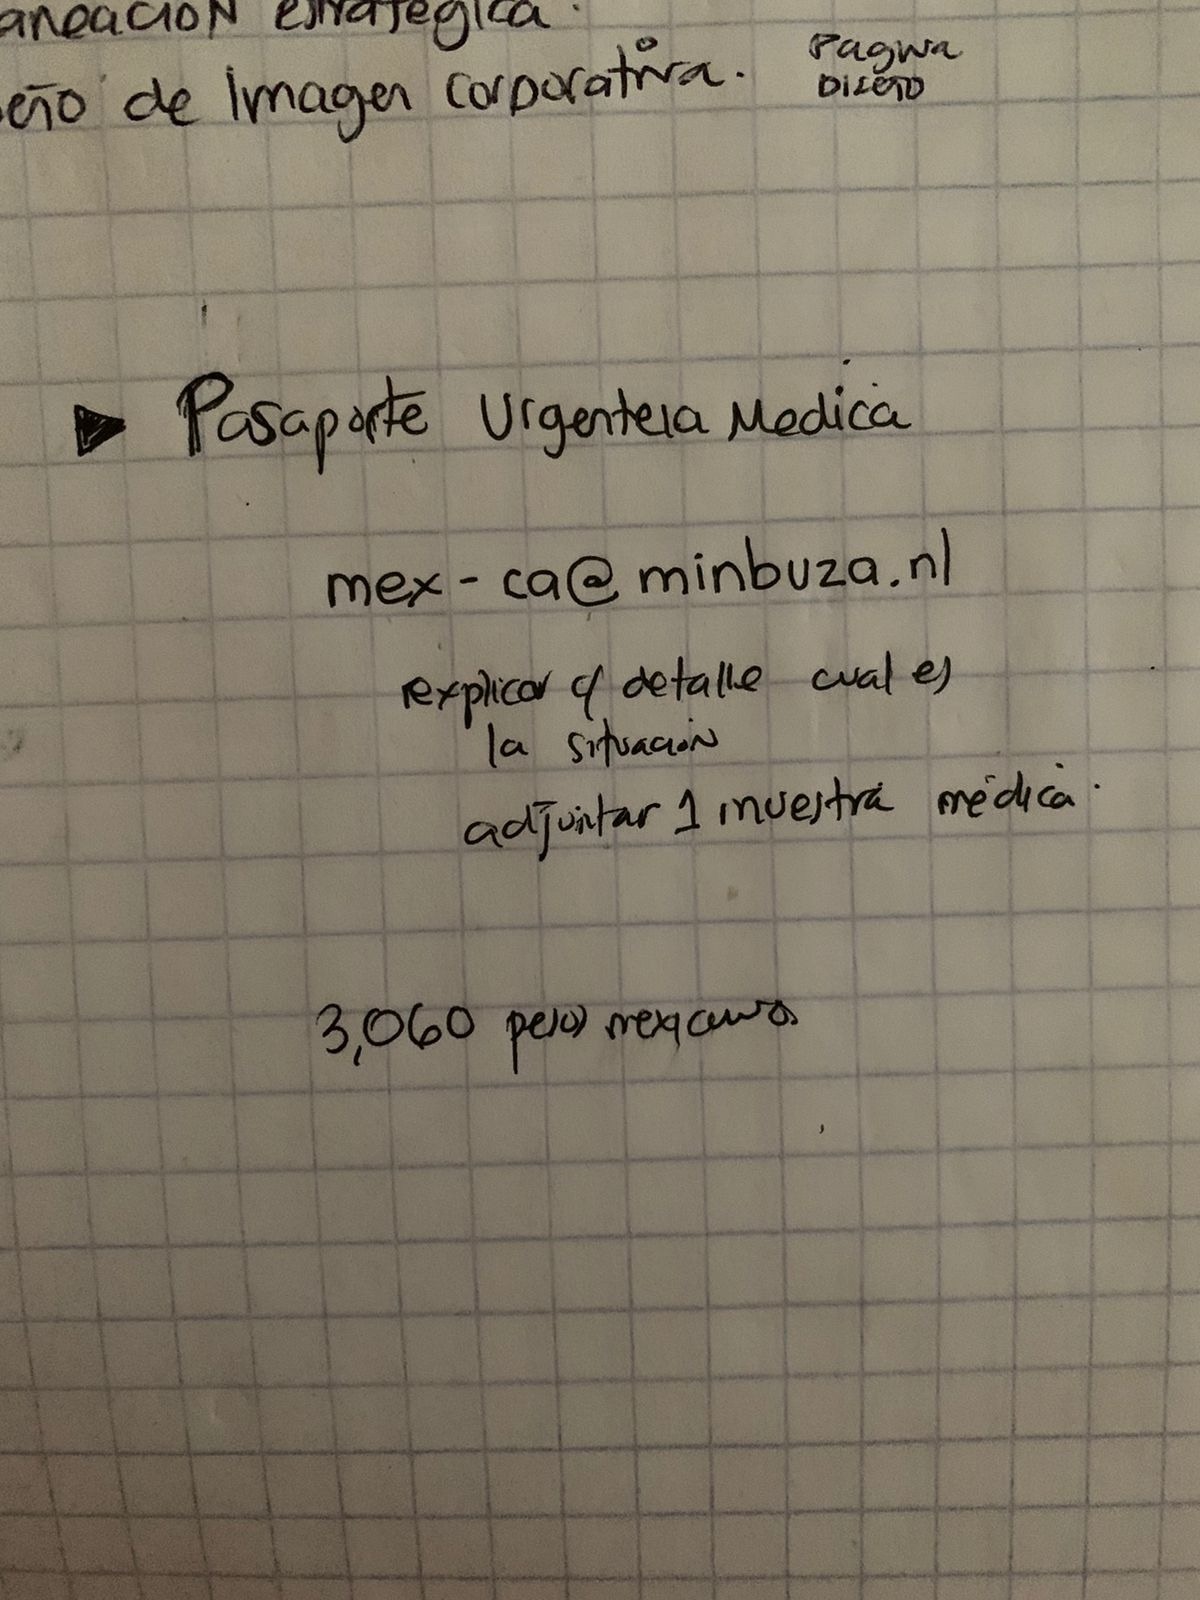 aneación estratégica.
eño de Imagen corporativa.
Pagina
DISEÑO
Pasaporte Urgenteia Medica
mex-ca@minbuza.nl
explicar c/ detalle cual es
la situación
adjuntar 1 muestra médica.
3,060 pesos mexicanos